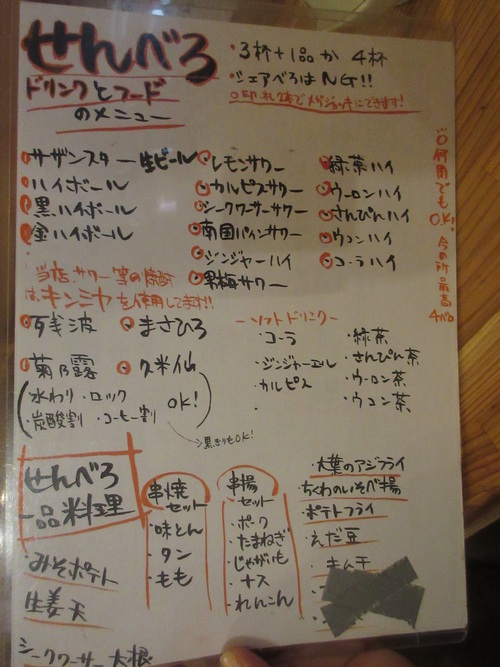 せんべろ
ドリンクとフード
のメニュー
・3杯+1品か 4杯
・シェアべろはNG!!
○印、札2本でメガジョッキにできます!
○サザンスター生ビール
○ハイボール
○黒ハイボール
○金ハイボール
○レモンサワー
○カルピスサワー
○シークワーサーサワー
○南国パインサワー
○ジンジャーハイ
○黒梅サワー
○緑茶ハイ
○ウーロンハイ
○さんぴんハイ
○ウコンハイ
○コーラハイ
※何周でも
OK!
今の所最高
4べろ
当店、サワー等の焼酎
は、キンミヤを使用してます!!
○残波
○まさひろ
○菊乃露
○久米仙
(水わり・ロック
・炭酸割・コーヒー割) OK!
→黒もOK!
ーソフトドリンクー
・コーラ
・ジンジャーエール
・カルピス
・緑茶
・さんぴん茶
・ウーロン茶
・ウコン茶
せんべろ
一品料理
みそポテト
生姜天
シークワーサー大根
串焼
セット
・味とん
・タン
・もも
串揚
セット
・ポーク
・たまねぎ
・じゃがいも
・ナス
・れんこん
・大葉のアジフライ
・ちくわのいそべ揚
・ポテトフライ
・えだ豆
・キムチ